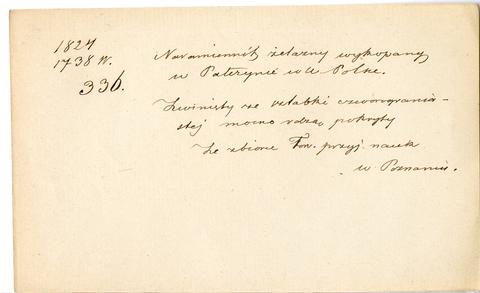 1827
1738 W.
336.
Naramiennik żelazny wykopany
w Paterynie w W. Polsc.
Zwinięty ze sztabki czworogrania-
stej mocno rdzą pokryty
Ze zbioru Tow. przyj. nauk
w Poznaniu.